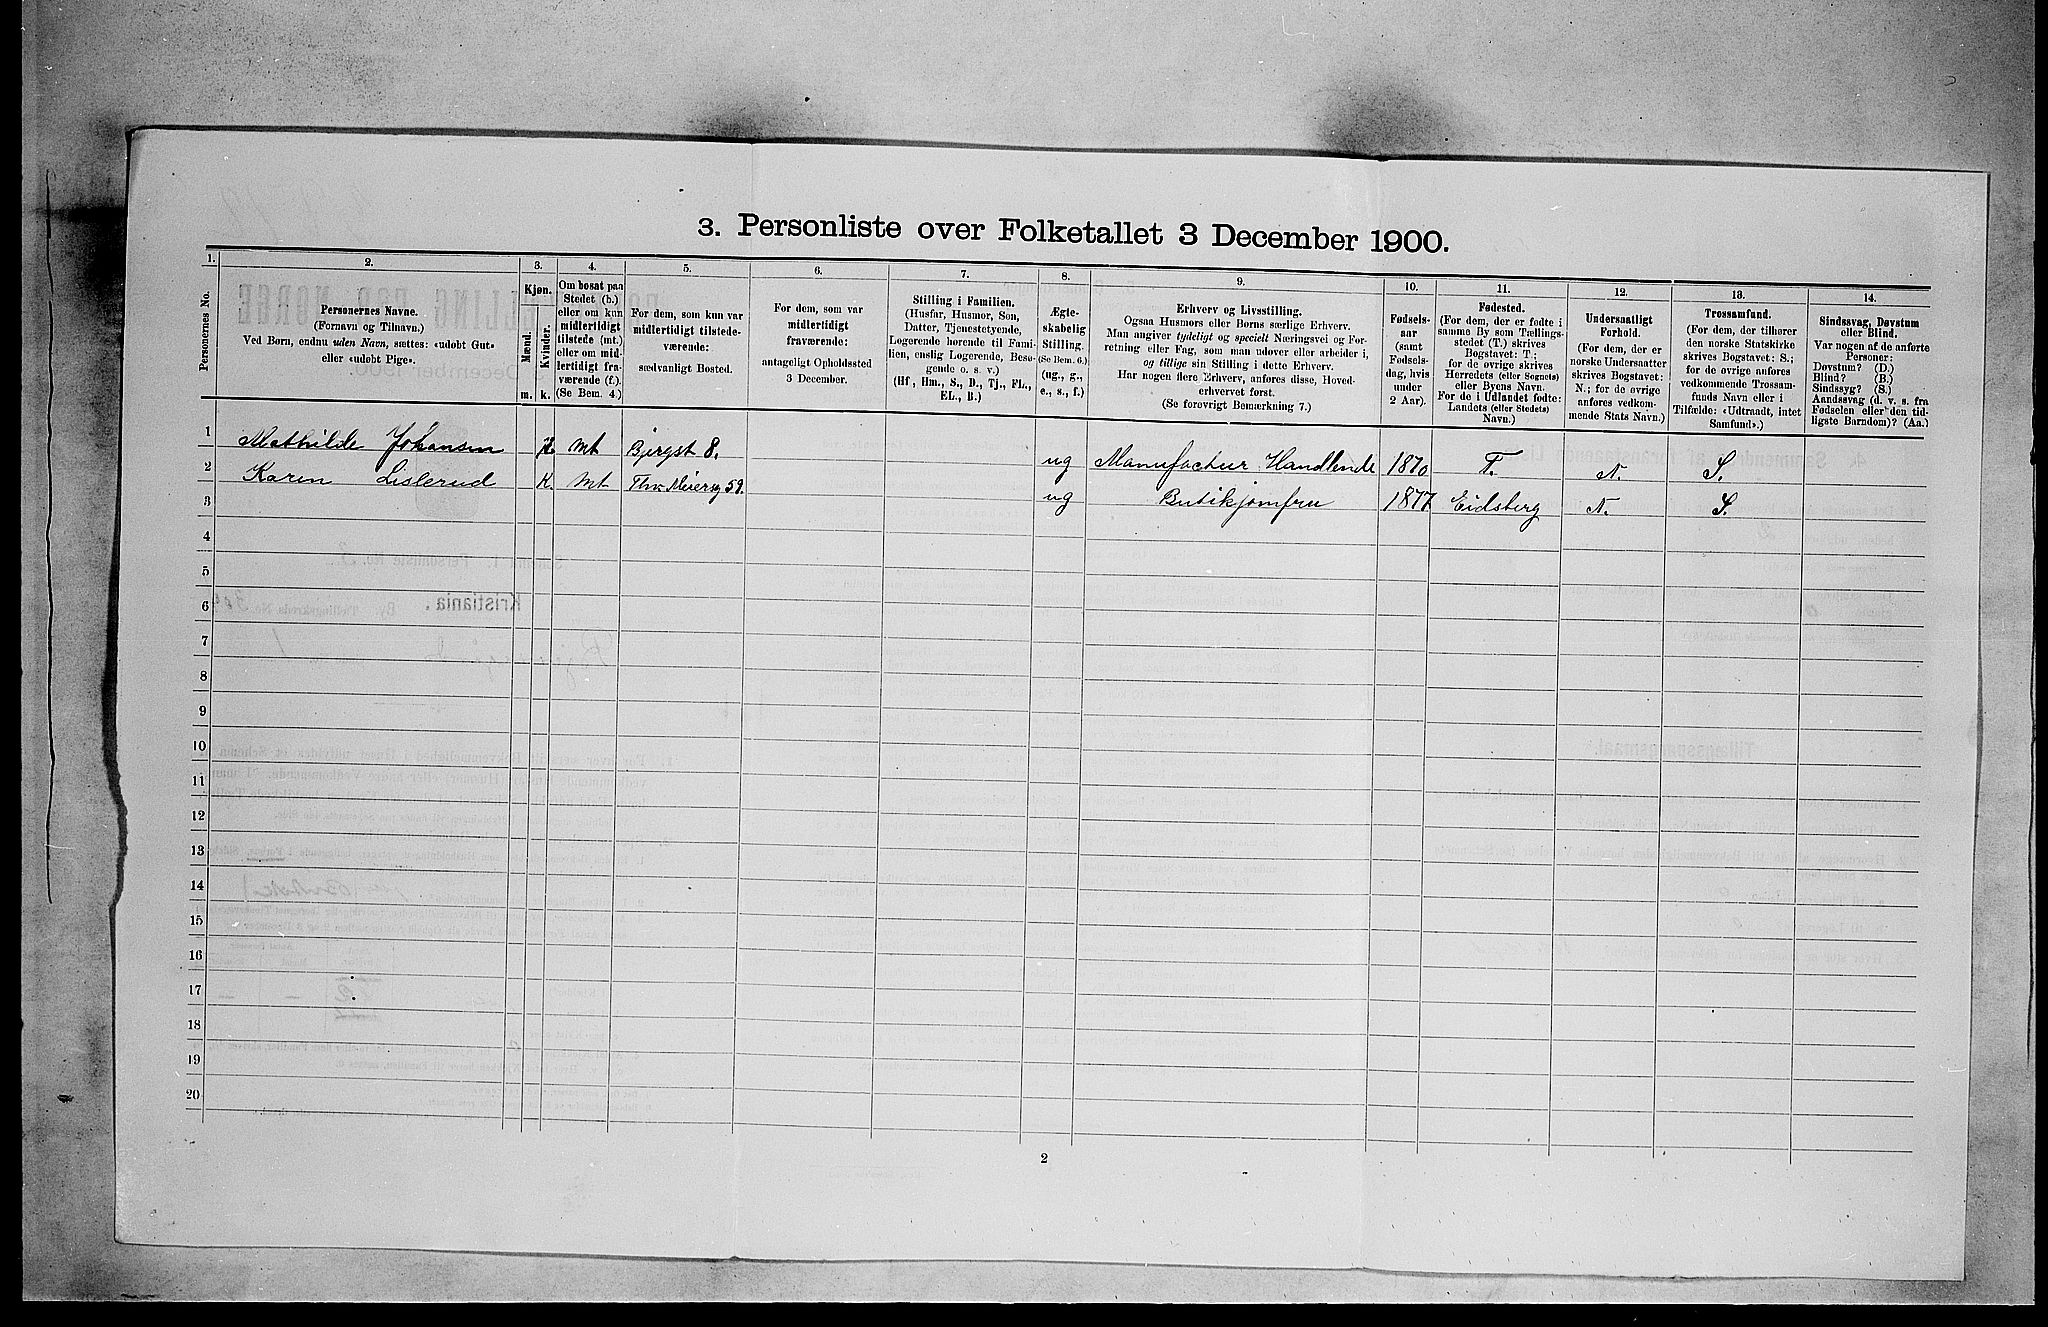 3. Personliste over Folketallet 3 December 1900.
1. 2. 3. 4. 5. 6. 7. 8. 9. 10. 11. 12. 13. 14.
Personernes No.
Personernes Navne.
(Fornavn og Tilnavn.)
Ved Børn, endnu uden Navn, sættes: «udøbt Gut»
eller «udøbt Pige».
Kjøn.
Mænd. Kvinder.
m. k.
Om bosat paa
Stedet (b.)
eller om kun
midlertidigt
tilstede (mt.)
eller om mid-
lertidigt fra-
værende (f.)
(Se Bem. 4.)
For dem, som kun var
midlertidigt tilstede-
værende:
sædvanligt Bosted.
For dem, som var
midlertidigt
fraværende:
antageligt Opholdssted
3 December.
Stilling i Familien.
(Husfar, Husmor, Søn,
Datter, Tjenestetyende,
Logerende hørende til Fami-
lien, enslig Logerende, Besø-
gende o. s. v.)
(Hf, Hm., S., D., Tj., FL.,
EL., B.)
Ægte-
skabelig
Stilling.
(Se Bem. 6.)
(ug., g.,
e., s., f.)
Erhverv og Livsstilling.
Ogsaa Husmors eller Børns særlige Erhverv.
Man angiver tydeligt og specielt Næringsvei og For-
retning eller Fag, som man udøver eller arbeider i,
og tillige sin Stilling i dette Erhverv.
Har nogen flere Erhverv, anføres disse, Hoved-
erhvervet først.
(Se forøvrigt Bemærkning 7.)
Fødsels-
aar
(samt
Fødsels-
dag, hvis
under
2 Aar).
Fødested.
(For dem, der er fødte i
samme By som Tællings-
stedet (T.) skrives
Bogstavet: T.;
for de øvrige skrives
Herredets (eller Sognets)
eller Byens Navn.
For de i Udlandet fødte:
Landets (eller Stedets)
Navn.)
Undersaatligt
Forhold.
(For dem, der er
norske Undersaatter
skrives Bogstavet:
N.; for de øvrige
anføres vedkom-
mende Stats Navn.)
Trossamfund.
(For dem, der tilhører
den norske Statskirke
skrives Bogstavet: S.;
for de øvrige anføres
vedkommende Trossam-
funds Navn eller i
Tilfælde: «Udtraadt, intet
Samfund».)
Sindssvag, Døvstum
eller Blind.
Var nogen af de anførte
Personer:
Døvstum? (D.)
Blind? (B.)
Sindssyg? (S.)
Aandssvag (d. v. s. fra
Fødselen eller den tid-
ligste Barndom)? (Aa.)
1 Mathilde Johansen k. mt Bjergst 8. ug Manufactur Handlende 1870 T. N. S.
2 Karen Lislerud k. mt Thv. Meiersg 59. ug Butikjomfru 1877 Eidsberg N. S.
3
4
5
6
7
8
9
10
11
12
13
14
15
16
17
18
19
20
2